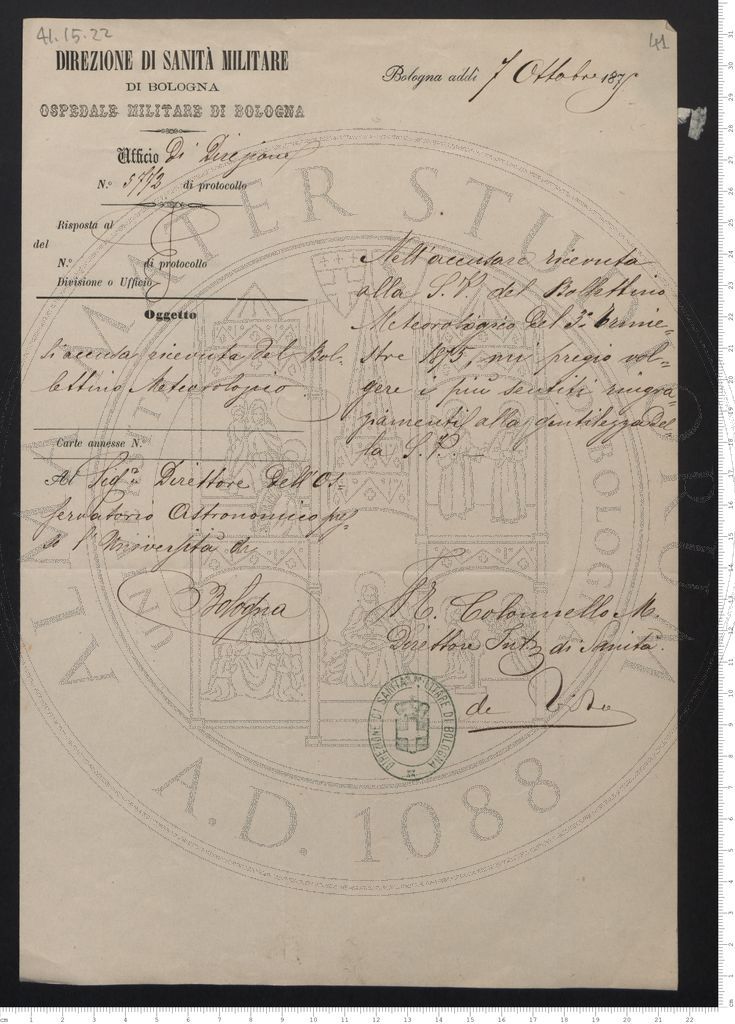 41.15.22
41
DIREZIONE DI SANITÀ MILITARE
DI BOLOGNA
OSPEDALE MILITARE DI BOLOGNA
Bologna addì 7 Ottobre 1875
Ufficio Di Direzione
N.° 5772 di protocollo
Risposta al
del
N.° di protocollo
Divisione o Ufficio
Oggetto
Si accusa ricevuta del Bol=
lettino Meteorologico
Carte annesse N.
Al Sig.r Direttore dell'Os=
servatorio Astronomico pres=
so l'Università di
Bologna
Nell'accusare ricevuta
alla S.V. del Bollettino
Meteorologico del 3° trime=
stre 1875, mi pregio vol=
gere i più sentiti ringra=
ziamenti alla gentilezza del=
la S.V.
Il T. Colonnello M.
Direttore Int. di Sanità
de
DIREZIONE DI SANITÀ MILITARE DI BOLOGNA
ALMA MATER STUDIORUM
A.D. 1088